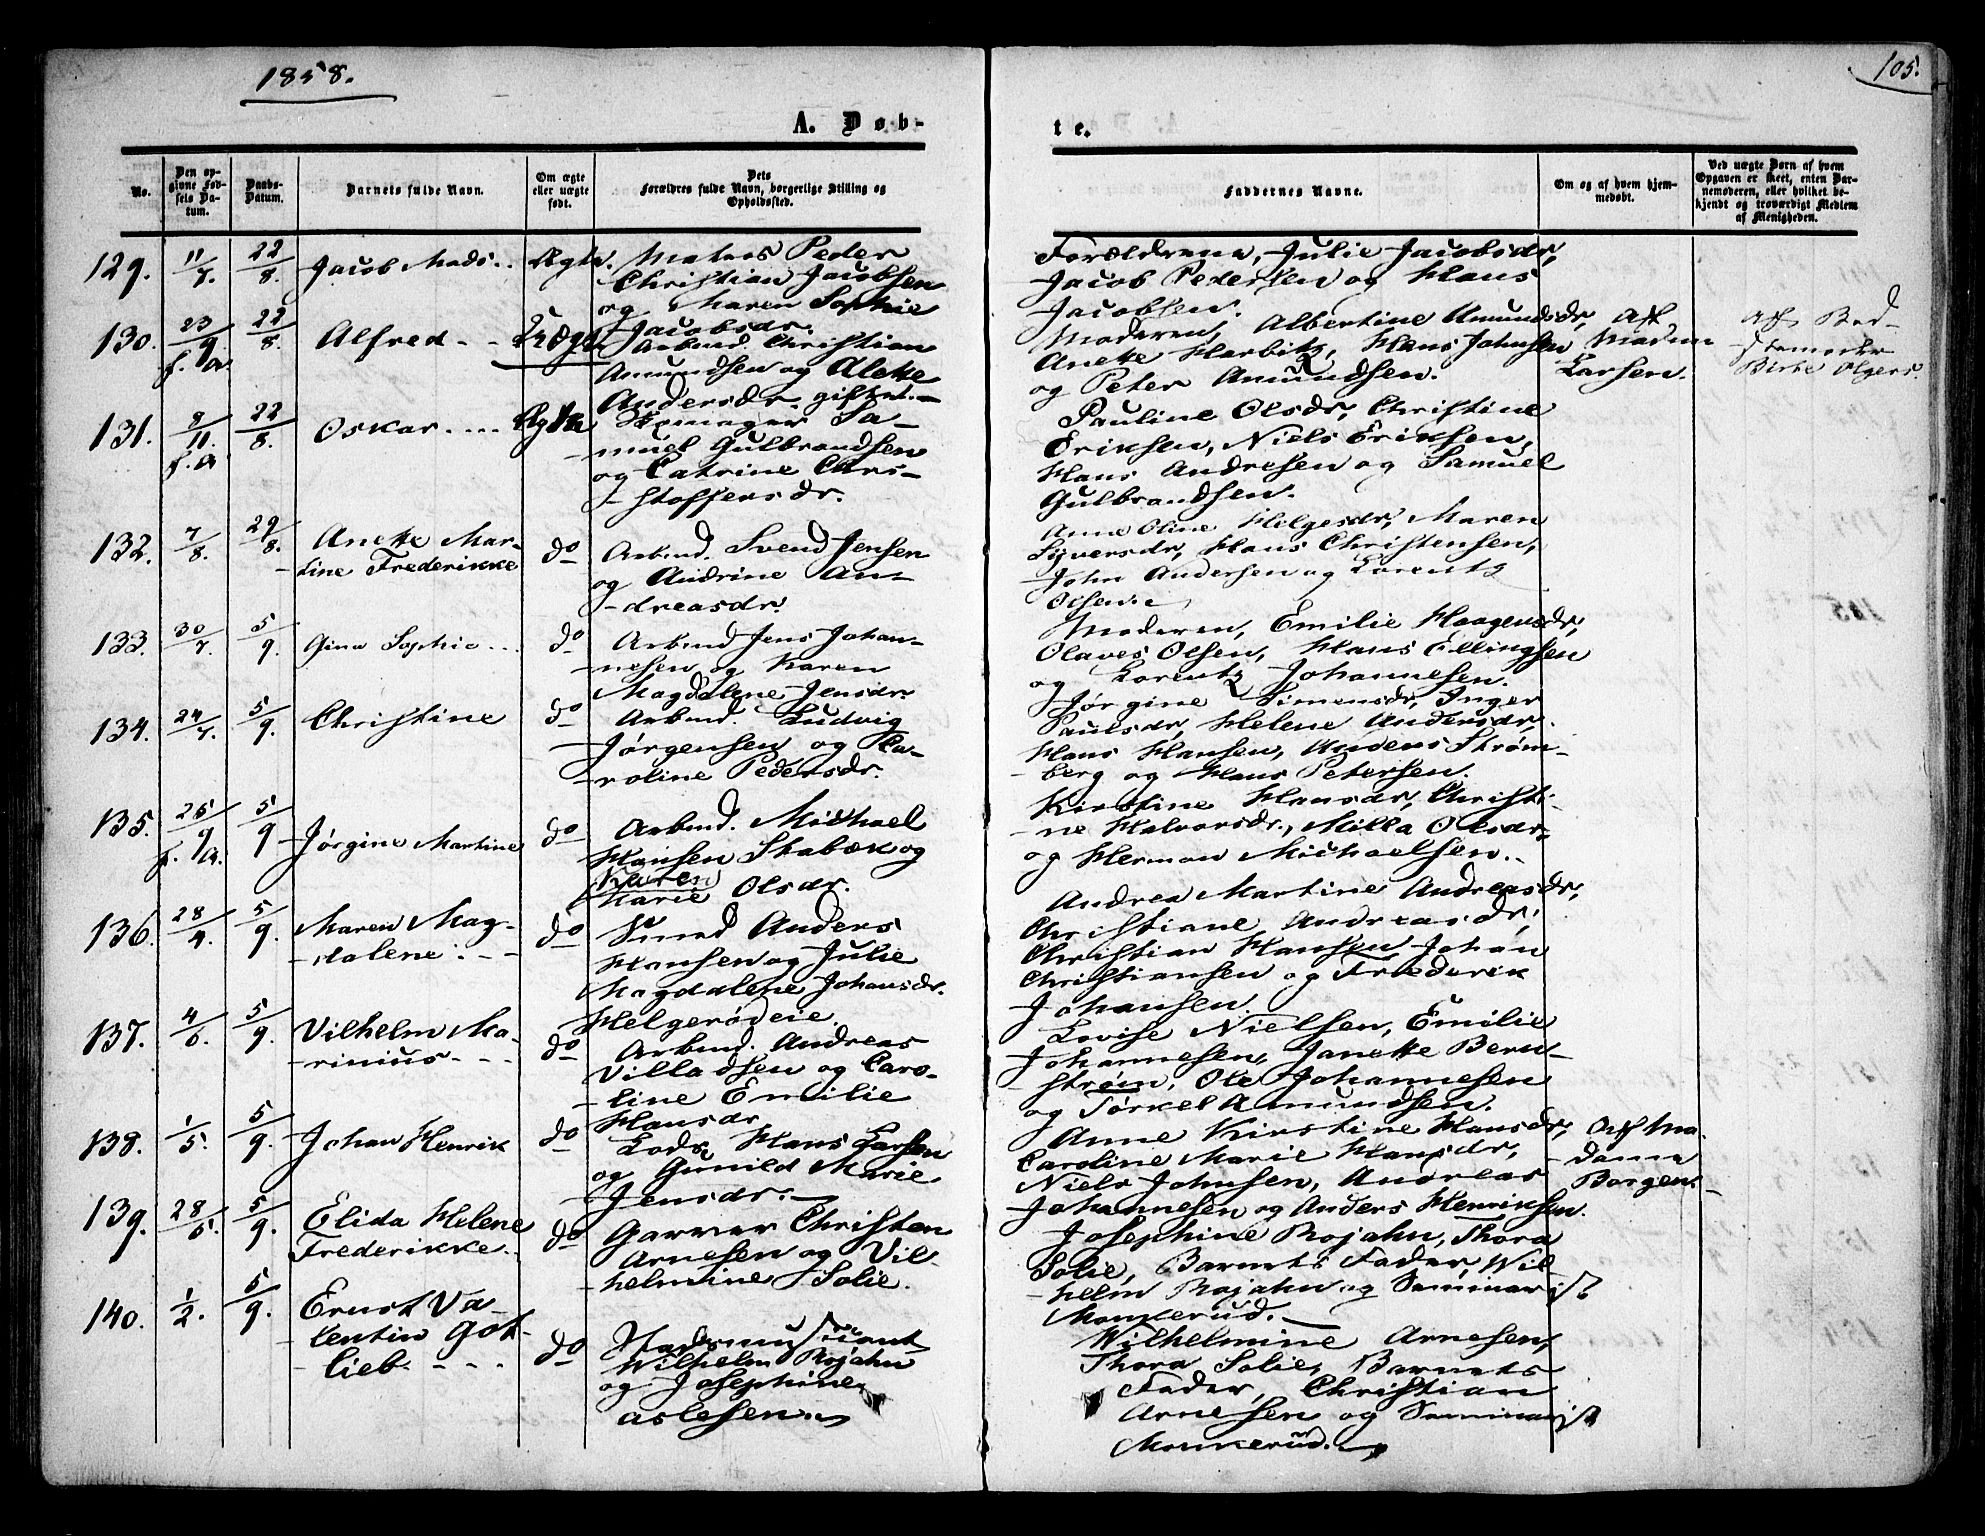 1858.
105.
A. Døb-
te.
No.
Den op-
givne Fød-
sels Da-
tum.
Daabs-
Datum.
Barnets fulde Navn.
Om ægte
eller uægte
født.
Dets
Forældres fulde Navn, borgerlige Stilling og
Opholdssted.
Faddernes Navne.
Om og af hvem hjem-
medøbt.
Ved uægte Børn af hvem
Opgaven er skeet, enten Bar-
nemoderen, eller hvilket be-
kjendt og troværdigt Medlem
af Menigheden.
129. 11/7. 22/8. Jacob Mads.. Ægte. Matros Peder
Christian Jacobsen
og Maren Sophie
Jacobsdr.
Forældrene, Julie Jacobsdr,
Jacob Pedersen og Hans
Jacobsen.
130. 23/9. f. A. 22/8. Alfred - - Uægte Arbmd. Christian
Amundsen og Alette
Andersdr. gifte.
Moderen, Albertine Amundsdr,
Anette Harbitz, Hans Johnsen
og Peter Amundsen.
Af
Madm
Larsen.
Af Bed-
stemoder
Birte Olgers.
131. 8/11. f. A 22/8. Oskar.... Ægte Skomager Sa-
muel Gulbrandsen
og Catrine Chri-
stoffersdr.
Pauline Olsdr, Christine
Eriksen, Niels Eriksen,
Hans Andresen og Samuel
Gulbrandsen.
132. 7/8. 29/8. Anette Mar-
tine Frederikke do Arbmd. Svend Jensen
og Andrine An-
dreasdr.
Anne Oline Helgesdr, Maren
Syversdr, Hans Christensen,
John Andersen og Lorents
Olsen.
133. 30/7. 5/9. Gina Sophie... do Arbmd Jens Johan-
nesen og Karen
Magdalene Jensdr.
Moderen, Emilie Haagensdr,
Olaves Olsen, Hans Ellingsen
og Lorentz Johannesen.
134. 24/7. 5/9. Christine do Arbmd. Ludvig
Jørgensen og Ca-
roline Pedersdr.
Jørgine Simensdr, Inger
Paulsdr, Helene Andersdr.
Hans Hansen, Anders Strøm-
berg og Hans Petersen.
135. 26/9 f. A. 5/9 Jørgine Martine do Arbmd. Michael
Hansen Stabæk og
Karen
Marie Olsdr.
Kirstine Hansdr, Christi-
ne Halvorsdr., Milla Olsdr,
og Herman Michaelsen.
136. 28/4. 5/9. Maren Mag-
dalene. - - do Smed Anders
Hansen og Julie
Magdalene Johansdr.
Helgerødeie.
Andrea Martine Andreasdr,
Christiane Andreasdr,
Christian Hansen, Johan
Christiansen og Frederik
Johansen
137. 4/6. 5/9. Vilhelm Ma-
rinius. - - do Arbmd. Andreas
Villadsen og Caro-
line Emilie
Hansdr.
Lovise Nielsen, Emilie
Johannesen, Janette Bern-
strøm, Ole Johannesen
og Tørkel Amundsen.
138. 1/5. 5/9. Johan Henrik do Lods Hans Larsen
og Gunild Marie
Jensdr.
Anne Kirstine Hansdr,
Caroline Marie Hansdr,
Niels Johnsen, Andreas
Johannesen og Anders Henriksen.
Af Ma-
dame
Borgen.
139. 28/5. 5/9. Elida Helene
Frederikke. do Garver Christen
Arnesen og Vil-
helmine Solie.
Josephine Rojahn, Thora
Solie, Barnets Fader, Wil
helm Rojahn og Seminarist
Monkerud.
140. 1/2. 5/9. Ernst Va-
lentin Got-
lieb. - - - do Stadsmusicant
Wilhelm Rojahn
og Josephine
Aslesen.
Wilhelmine Arnesen,
Thora Solie, Barnets
Fader, Christian
Arnesen og Seminarist
Monkerud.